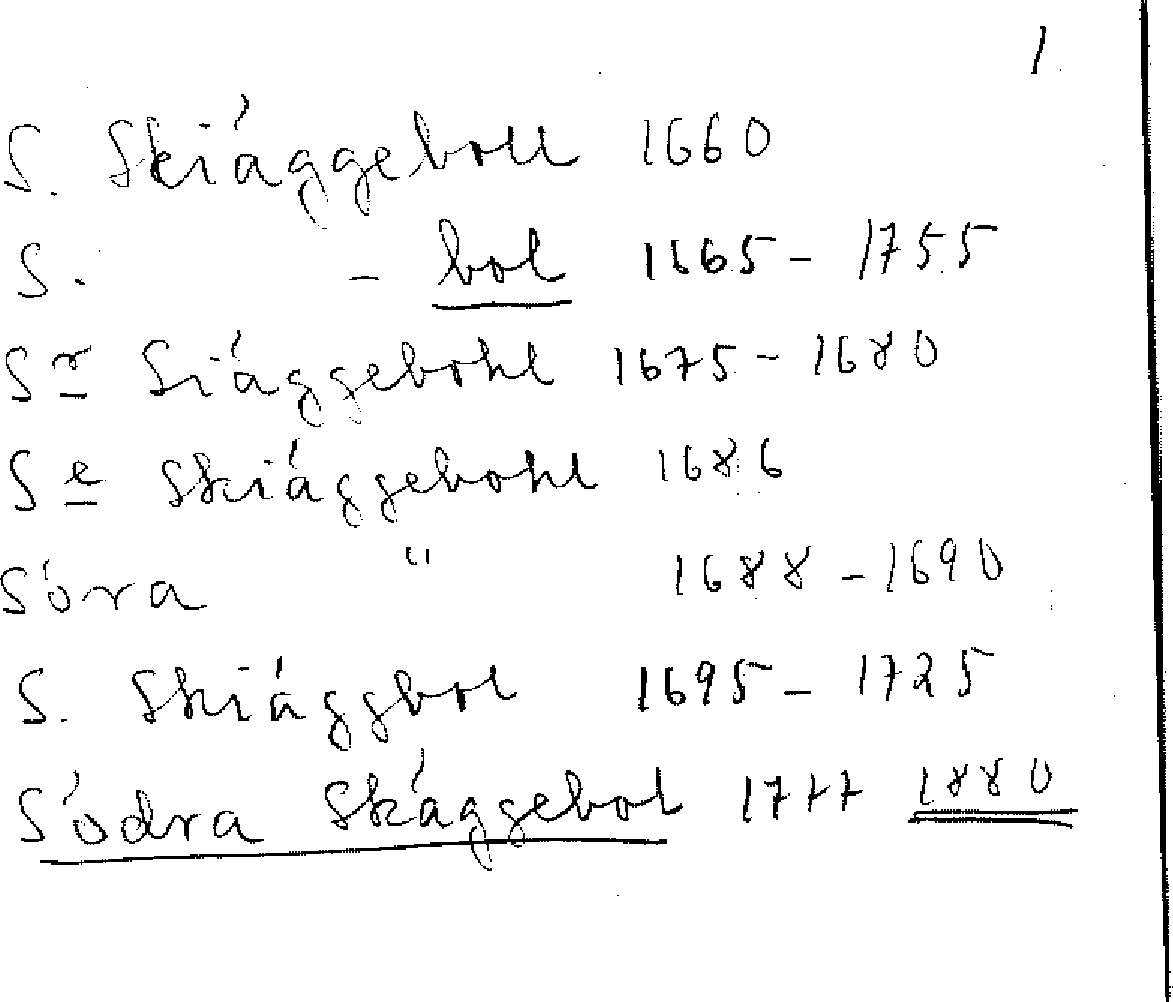 1.
S. Skiäggeboll 1660
S. - bol 1665 - 1755
Sr Siäggebohl 1675 - 1680
Se Skiäggebohl 1686
Söra " 1688 - 1690
S. Skiäggbol 1695 - 1725
Södra Skäggebol 1777 1880